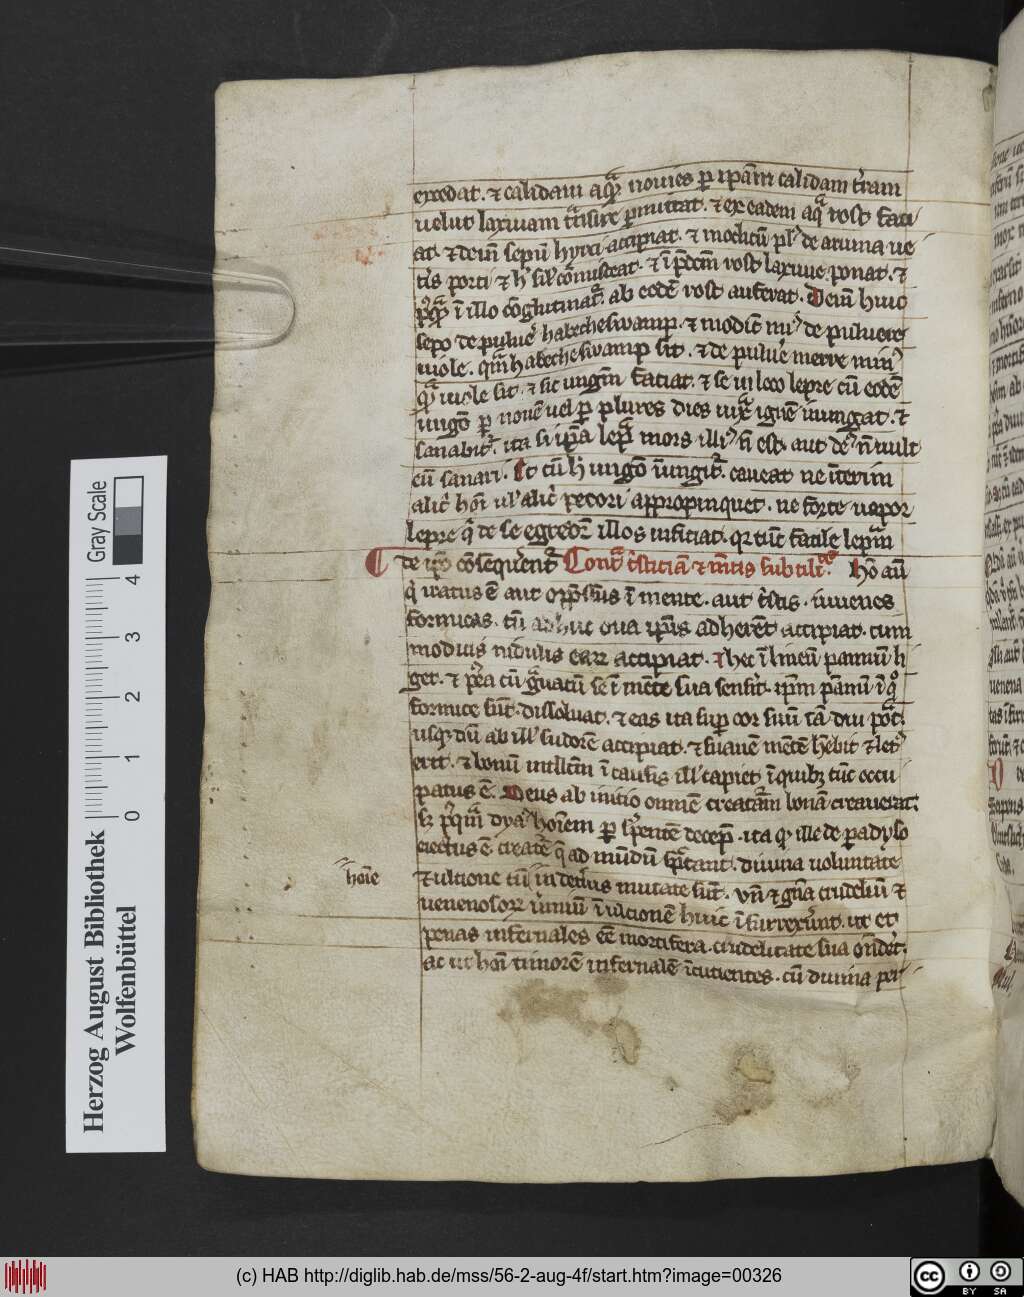 excedat. ⁊ calidam aquã novies per ipam calidam terram
velut laxivam transire permittat. ⁊ ex eadem aqua vost faci
at. ⁊ dein sepum hyrci accipiat. ⁊ modicum plus de arvina ve
teris porci ⁊ h sil cõmisceat. ⁊ ĩ pdcm vost laxive ponat. ⁊
ĩ illo cõglutinat. ab eodẽ vost auferat. Dein huic
sepo de pulvere habecheswamp. ⁊ modicũ min de pulvere
viole. qm habecheswamp sit. ⁊ de pulvere merve min
viole sit. ⁊ sic ungm faciat. ⁊ se in loco lepre cũ eodẽ
ungõ per novẽ vel per plures dies iuxta ignẽ inungat. ⁊
sanabit. ita si ipa lepra mors illi n est. aut de n vult
eũ sanari. Et cũ h ungõ ĩungit. caveat ne ĩterim
alicui hoi ul alicui pecori appropinquet. ne forte vapor
lepre q de se egredit illos inficiat. q tunc facile lepram
de ipo cõsequerent. Cont tristiciã ⁊ subtili. Hõ aũ
q iratus ẽ aut oppssus ĩ mente. aut tristis. iuvenes
formicas. cũ adhuc ova ipis adherẽt accipiat. cum
modicis nidulis earum accipiat. ⁊ hec ĩ lineũ pannũ li
get. ⁊ postea cũ gravatũ se ĩ mẽte sua senserit. ipm pannũ ĩ quo
formice sũt. dissolvat. ⁊ eas ita super cor suũ tã diu portet.
usque dũ ab ill sudorẽ accipiat. ⁊ suavẽ mẽtẽ hebit ⁊ let
erit. ⁊ bonũ intllcm ĩ causis ill capiet. ĩ quibus tũc occu
patus ẽ. Deus ab initio omnẽ creatam bonã creaverat.
Sz pquam dya hoiem per serpentẽ decep. ita q ille de padyso
eiectus ẽ creature que ad mũdũ spectant. divina voluntate
hoie
⁊ ultione cũ in deterius mutate sũt. Un ⁊ gña crudeliũ ⁊
venenosorum vermiũ ĩ ultionẽ huic ĩsurrexerunt. ut et
penas infernales eẽ mortifera. crudelitate sua onderet.
ac ut hoi timorẽ infernalẽ ĩcutientes. cũ divina per
Herzog August Bibliothek
Wolfenbüttel
Gray Scale
0 1 2 3 4
(c) HAB http://diglib.hab.de/mss/56-2-aug-4f/start.htm?image=00326
cc BY SA